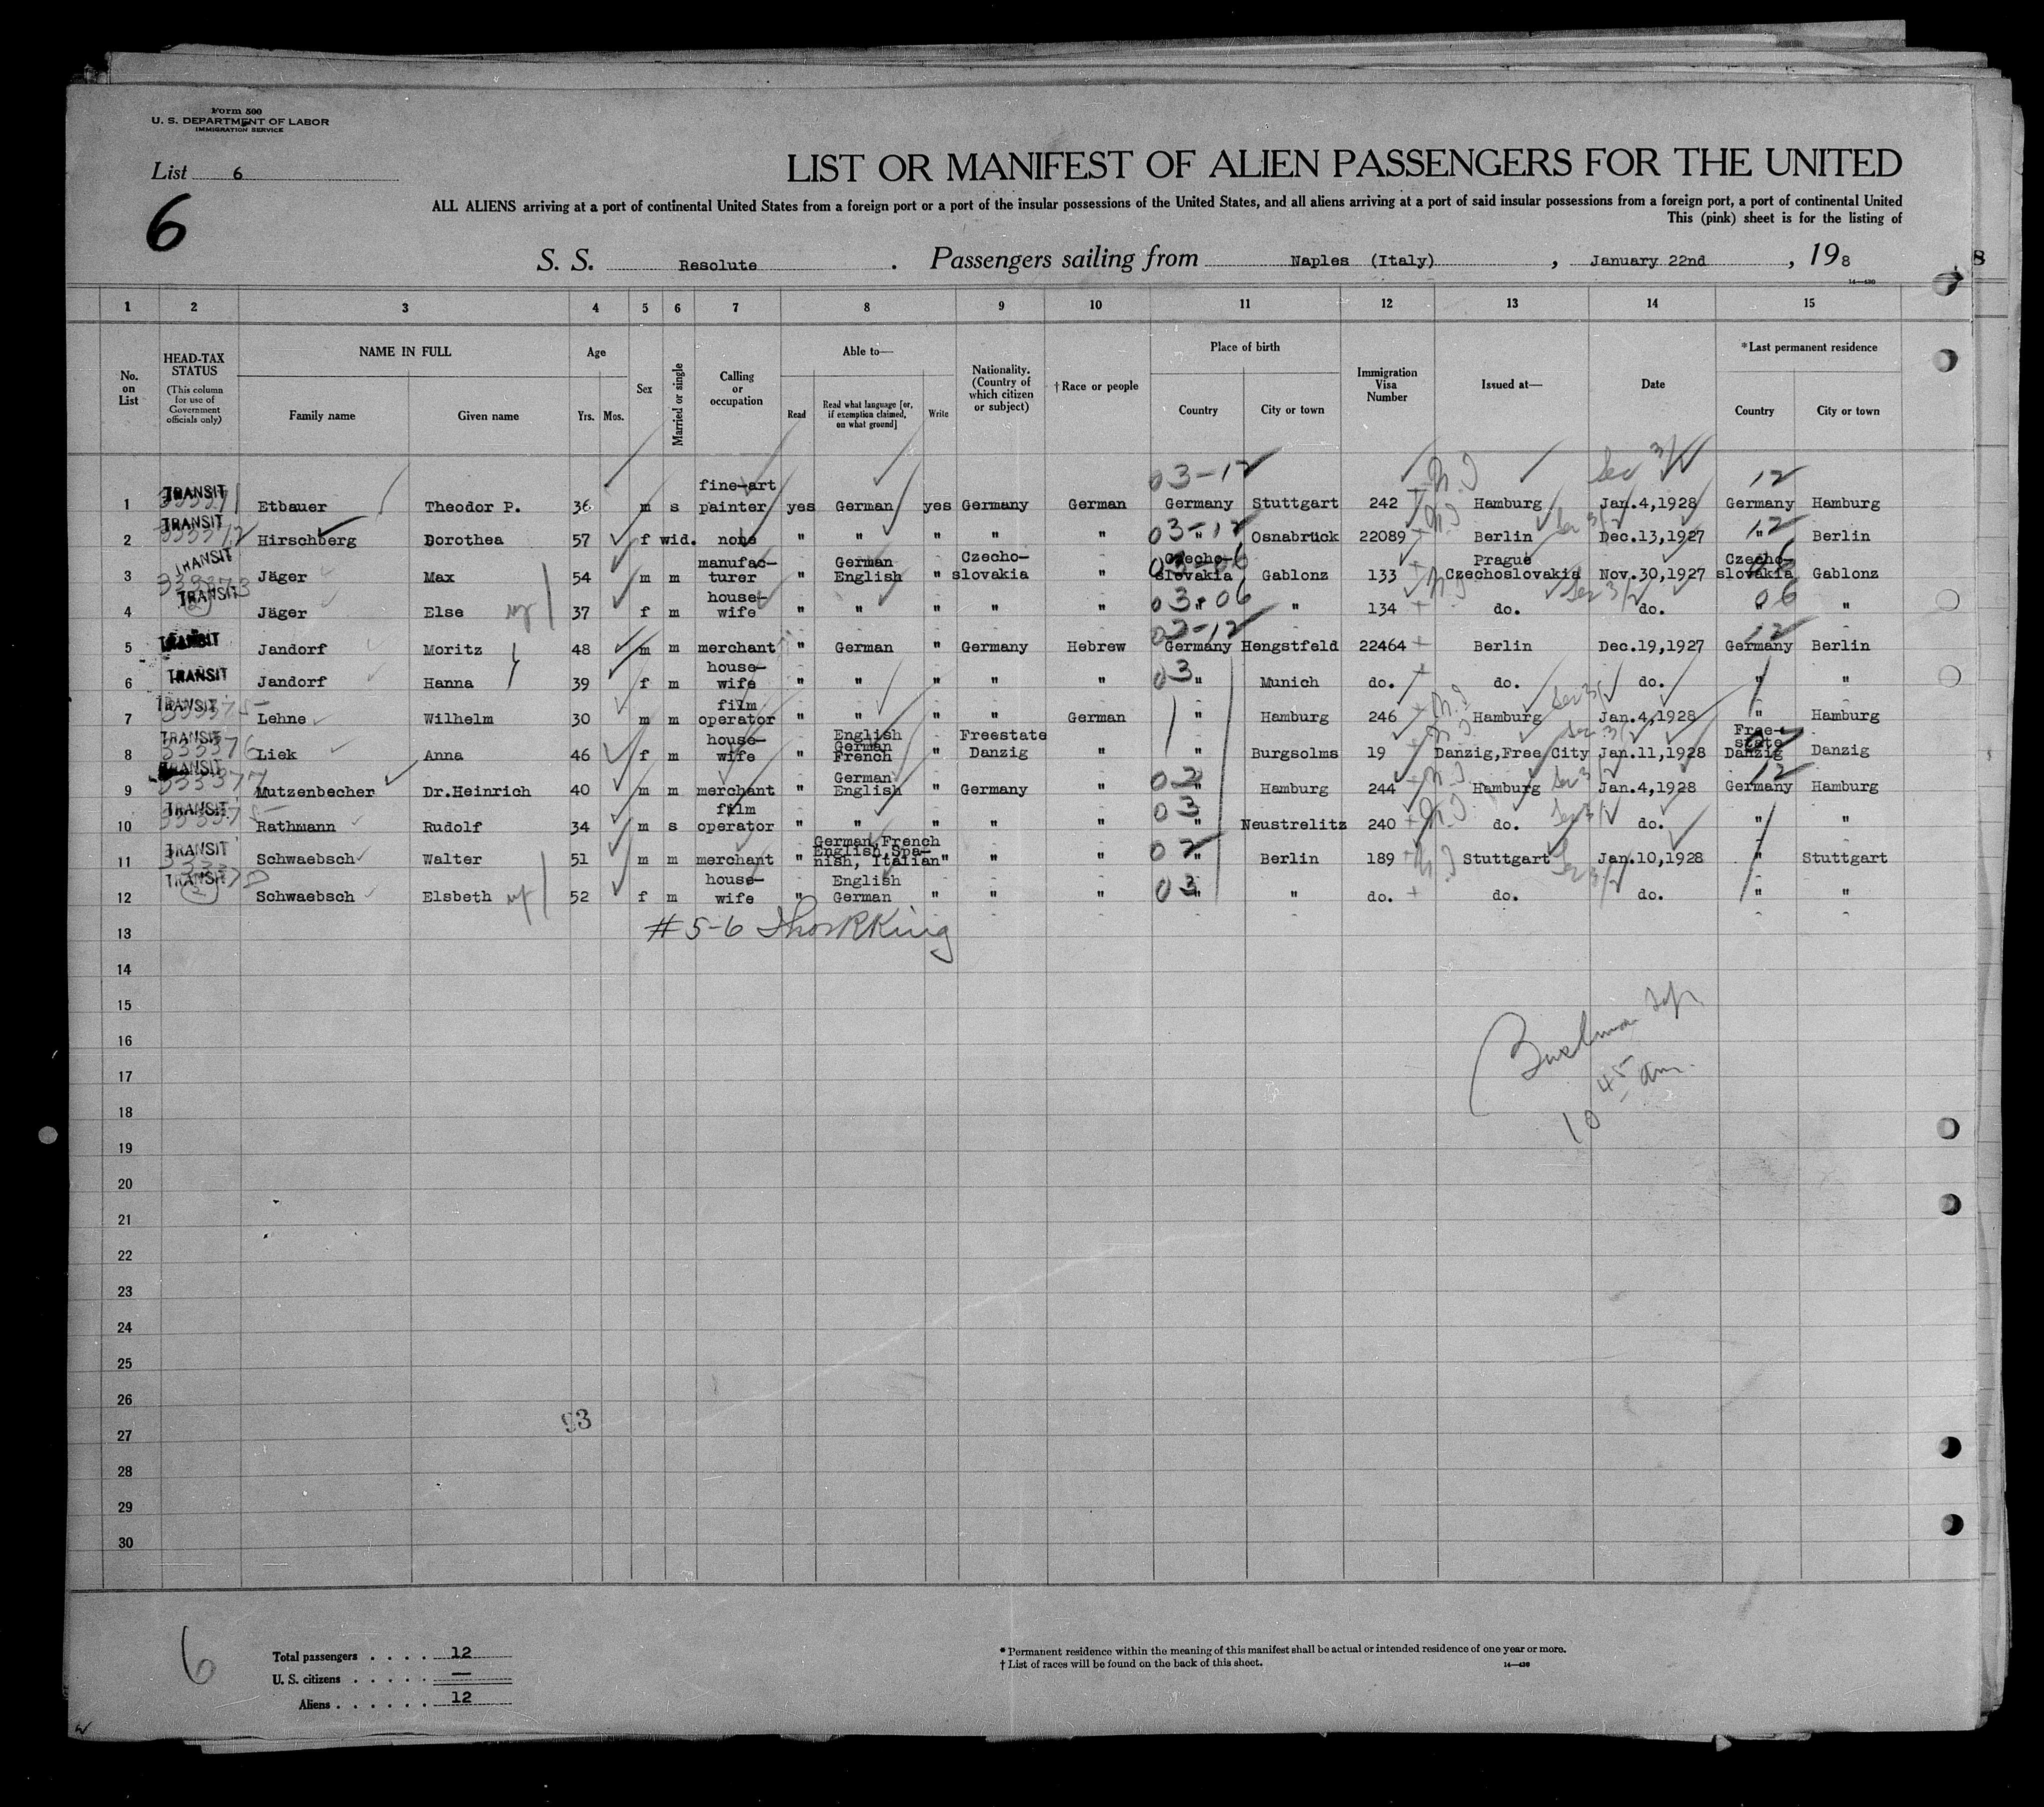 Form 500
U. S. DEPARTMENT OF LABOR
IMMIGRATION SERVICE
List 6
LIST OR MANIFEST OF ALIEN PASSENGERS FOR THE UNITED
6
ALL ALIENS arriving at a port of continental United States from a foreign port or a port of the insular possessions of the United States, and all aliens arriving at a port of said insular possessions from a foreign port, a port of continental United
This (pink) sheet is for the listing of
S. S. Resolute. Passengers sailing from Naples (Italy), January 22nd, 198
8
14—430
1 2 3 4 5 6 7 8 9 10 11 12 13 14 15
No. on List
HEAD-TAX STATUS (This column for use of Government officials only)
NAME IN FULL
Family name Given name
Age
Yrs. Mos.
Sex
Married or single
Calling or occupation
Able to—
Read Read what language [or, if exemption claimed, on what ground] Write
Nationality. (Country of which citizen or subject)
† Race or people
Place of birth
Country City or town
Immigration Visa Number
Issued at—
Date
* Last permanent residence
Country City or town
03-12 Sec 3/2 12
1 TRANSIT Etbauer Theodor P. 36 m s fine-art painter yes German yes Germany German Germany Stuttgart 242 Hamburg Jan.4,1928 Germany Hamburg
2 TRANSIT Hirschberg Dorothea 57 f wid. none " " " " " 03-12 " Osnabrück 22089 Berlin Dec.13,1927 12 " Berlin
3 TRANSIT Jäger Max 54 m m manufac-turer " German English " Czecho-slovakia " Czecho-slovakia Gablonz 133 Prague Czechoslovakia Nov.30,1927 Czecho-slovakia Gablonz
4 TRANSIT Jäger Else 37 f m house-wife " " " " " 03 06 " " 134 do. do. 06 " "
5 TRANSIT Jandorf Moritz 48 m m merchant " German " Germany Hebrew Germany Hengstfeld 22464 Berlin Dec.19,1927 12 Germany Berlin
6 TRANSIT Jandorf Hanna 39 f m house-wife " " " " " 03 " Munich do. do. do. " "
7 TRANSIT Lehne Wilhelm 30 m m film operator " " " " German " Hamburg 246 Hamburg Jan.4,1928 " Hamburg
8 TRANSIT 333376 Liek Anna 46 f m house-wife " English German French " Freestate Danzig " " Burgsolms 19 Danzig,Free City Jan.11,1928 Free-state Danzig Danzig
9 TRANSIT 333377 Mutzenbecher Dr.Heinrich 40 m m merchant " German English " Germany " 02 " Hamburg 244 Hamburg Jan.4,1928 12 Germany Hamburg
10 TRANSIT Rathmann Rudolf 34 m s film operator " " " " " 03 " Neustrelitz 240 do. do. " "
11 TRANSIT Schwaebsch Walter 51 m m merchant " German,French English,Spa-nish, Italian " " " 02 " Berlin 189 Stuttgart Jan.10,1928 " Stuttgart
12 TRANSIT Schwaebsch Elsbeth 52 f m house-wife " English German " " " 03 " " do. do. do. " "
13 # 5-6
14
15
16
17 10 45 am.
18
19
20
21
22
23
24
25
26
93
27
28
29
30
6
Total passengers . . . . 12
U. S. citizens . . . . . —
Aliens . . . . . . 12
* Permanent residence within the meaning of this manifest shall be actual or intended residence of one year or more.
† List of races will be found on the back of this sheet. 14—430